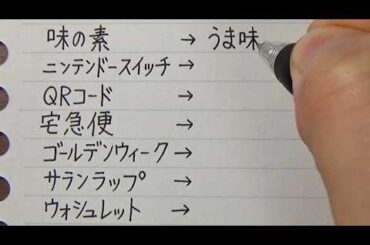 味の素 → うま味
ニンテンドースイッチ →
QRコード →
宅急便 →
ゴールデンウィーク →
サランラップ →
ウォシュレット →